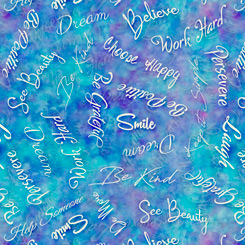 Dream
Believe
Be Positive
Work Hard
See Beauty
Be Kind
Choose Happy
Persevere
Be Grateful
Be Positive
Smile
Laugh
Love
Work Hard
Dream
Dream
Persevere
Be Kind
Be Grateful
See Beauty
Help Someone
Smile